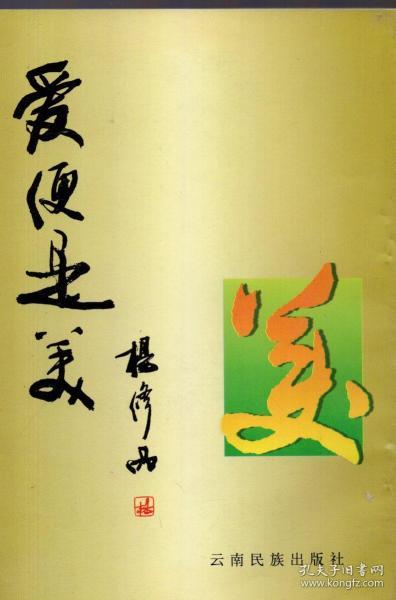 爱便是美
杨修品
美
云南民族出版社
孔夫子旧书网
www.kongfz.com